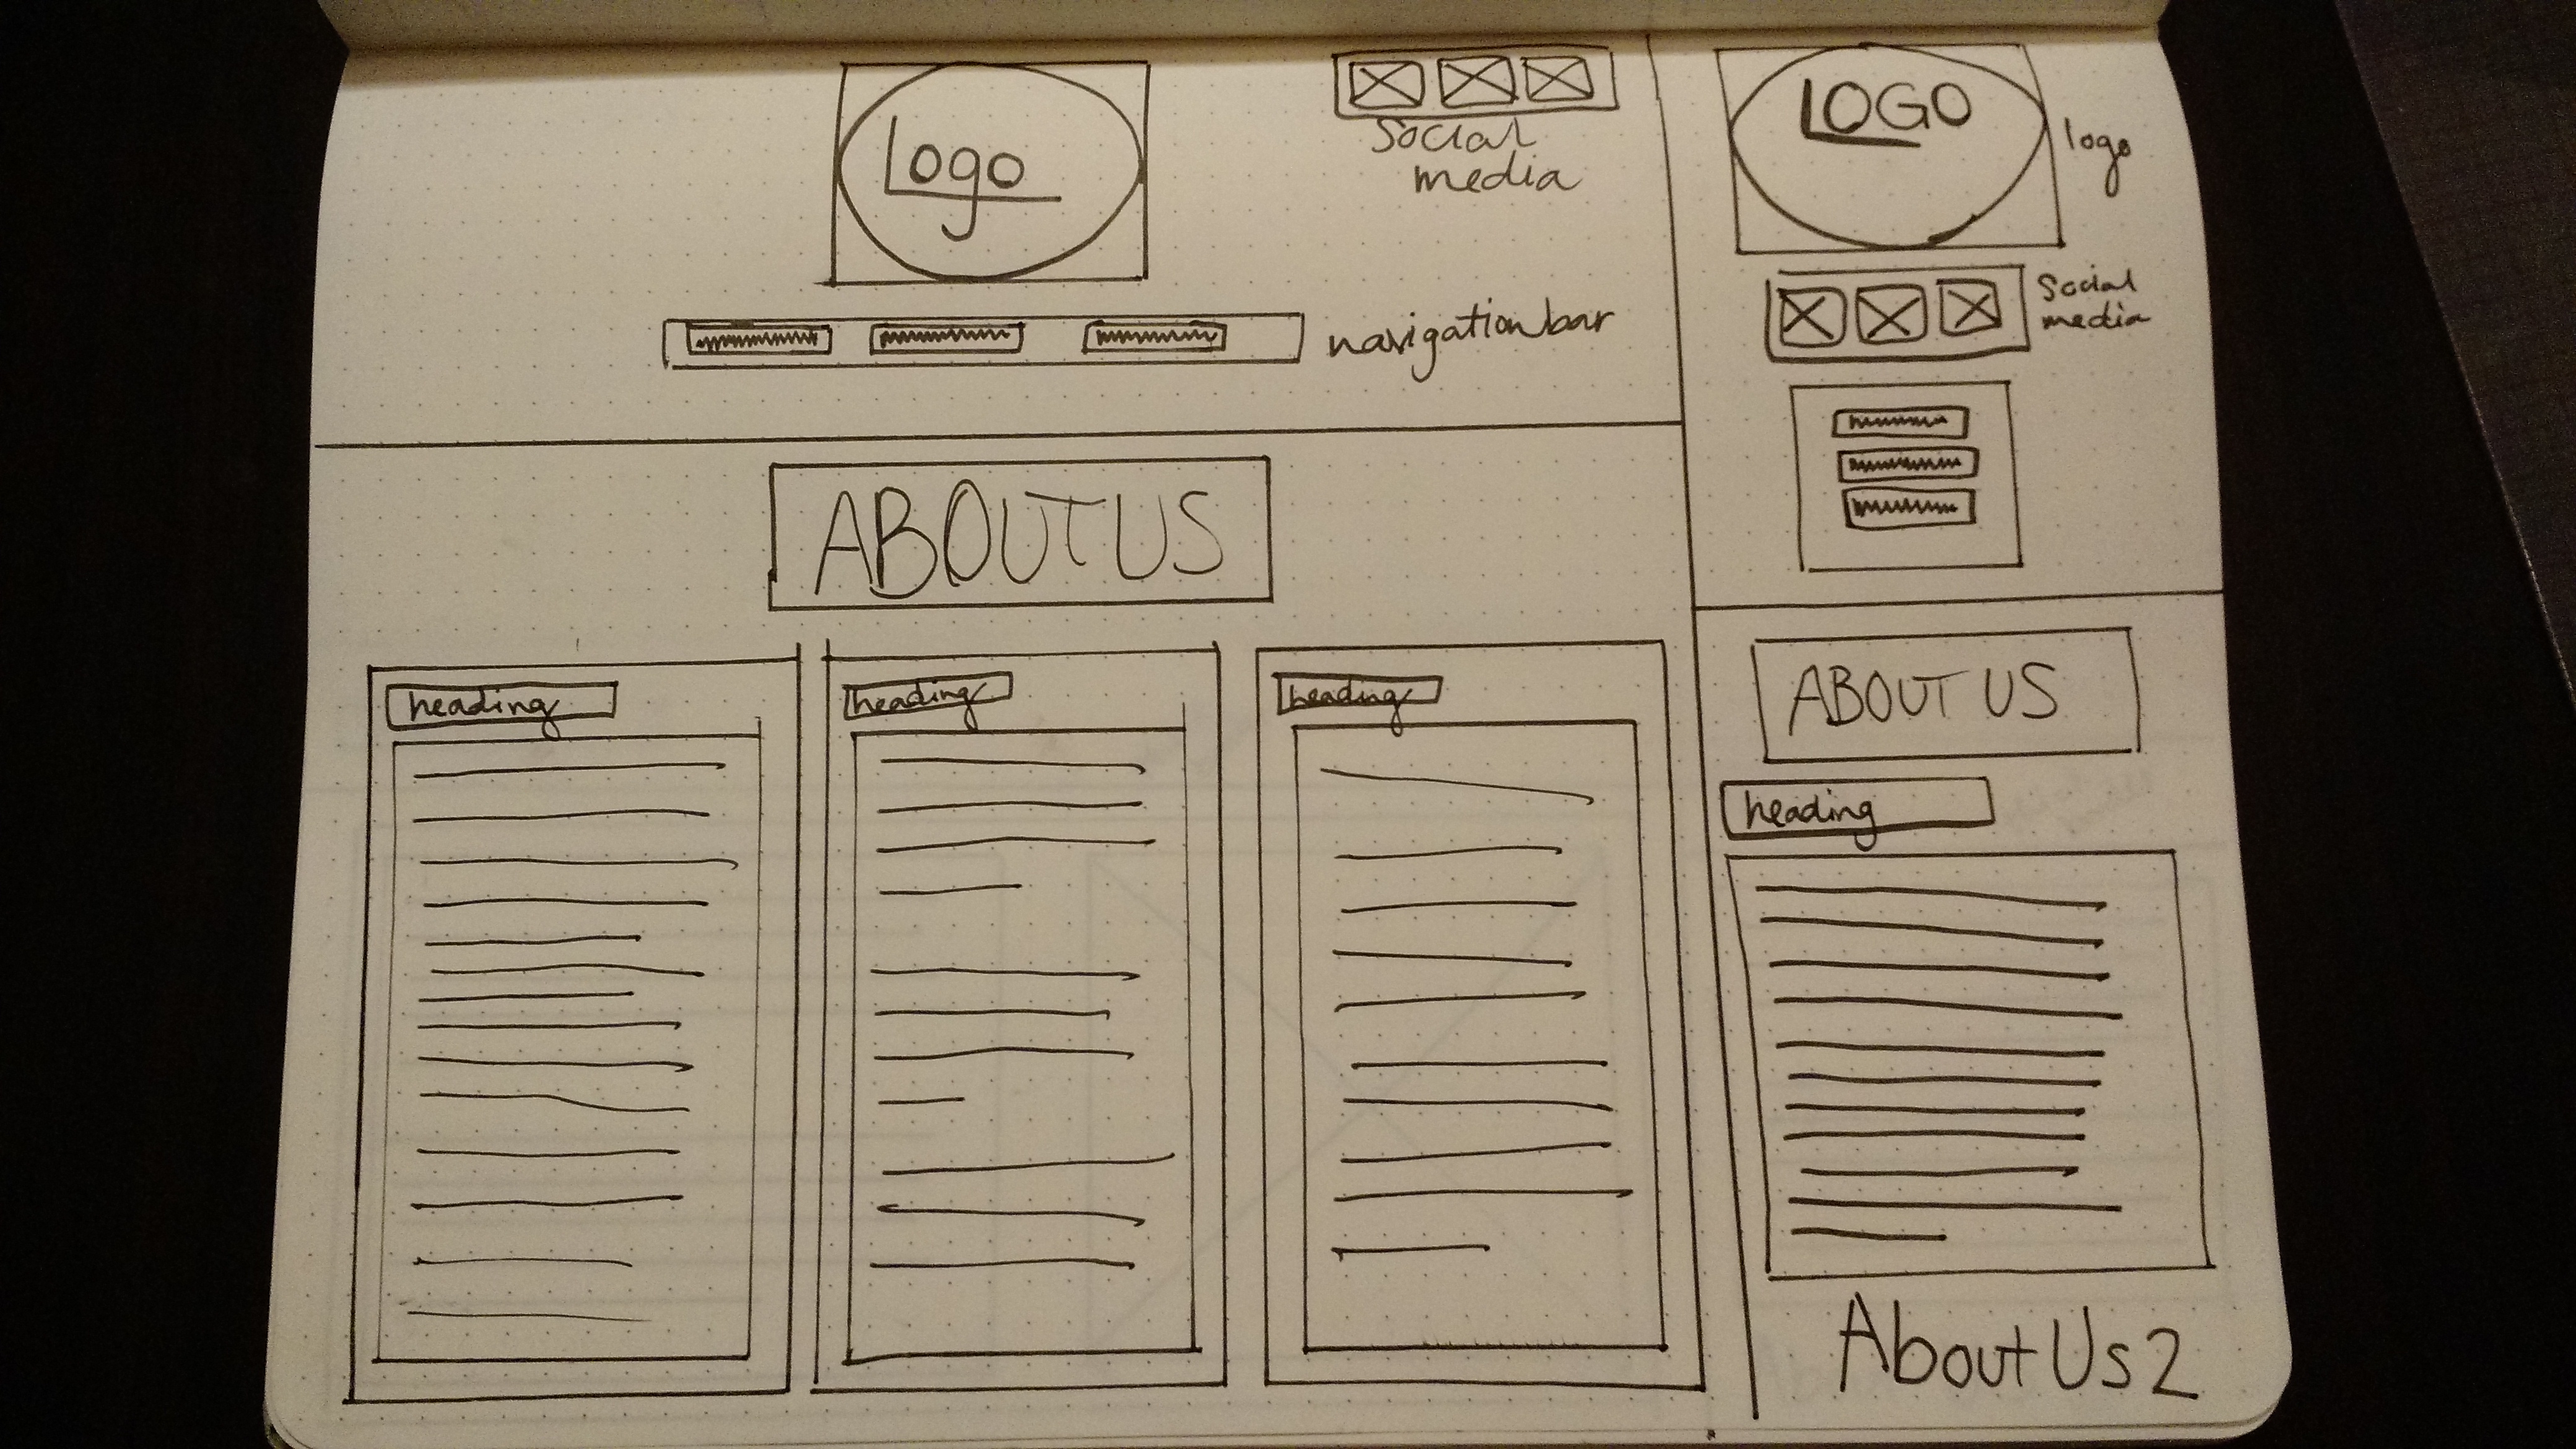 Logo
Social
media
navigation bar
ABOUT US
heading
heading
heading
LOGO
logo
Social
media
ABOUT US
heading
About Us 2